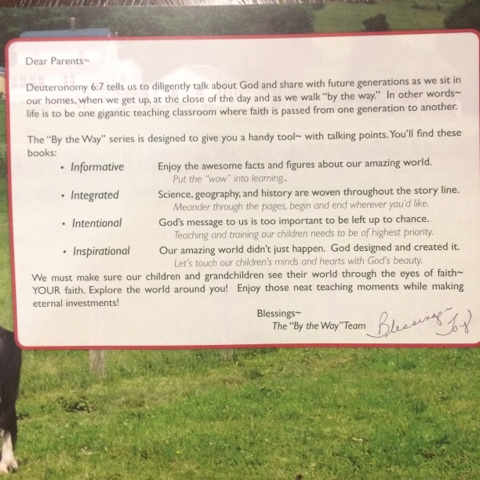 Dear Parents~
Deuteronomy 6:7 tells us to diligently talk about God and share with future generations as we sit in
our homes, when we get up, at the close of the day and as we walk "by the way." In other words~
life is to be one gigantic teaching classroom where faith is passed from one generation to another.
The "By the Way" series is designed to give you a handy tool~ with talking points. You'll find these
books:
• Informative Enjoy the awesome facts and figures about our amazing world.
Put the "wow" into learning..
• Integrated Science, geography, and history are woven throughout the story line.
Meander through the pages, begin and end wherever you'd like.
• Intentional God's message to us is too important to be left up to chance.
Teaching and training our children needs to be of highest priority.
• Inspirational Our amazing world didn't just happen. God designed and created it.
Let's touch our children's minds and hearts with God's beauty.
We must make sure our children and grandchildren see their world through the eyes of faith~
YOUR faith. Explore the world around you! Enjoy those neat teaching moments while making
eternal investments!
Blessings~
The "By the Way" Team Blessings~ Joy